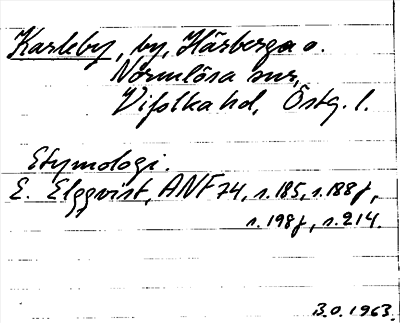 Karleby, by, Härberga o.
Normlösa snr,
Vifolka hd, Östg. l.
Etymologi.
E. Elgqvist, ANF 74, s. 185, s. 188 f,
s. 198 f, s. 214.
B.O. 1963.